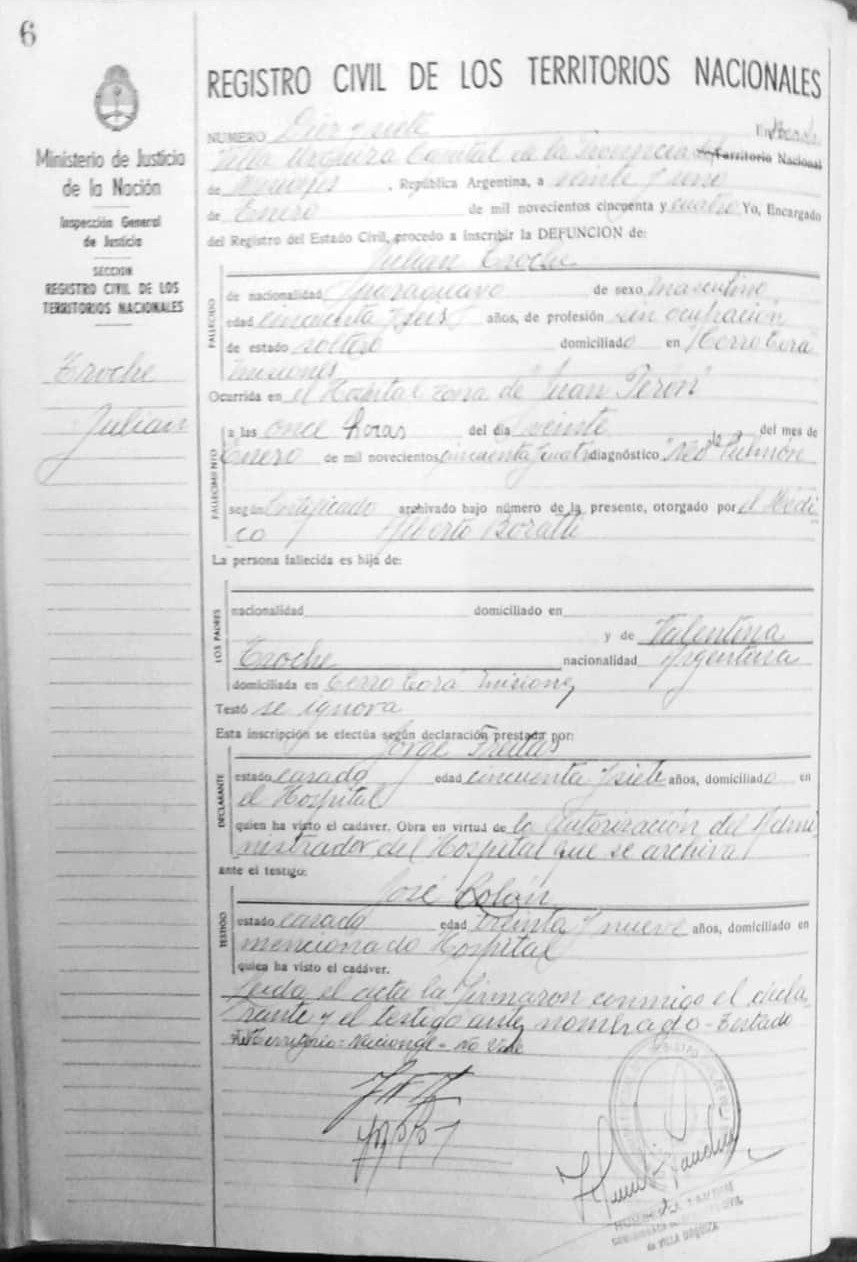 6
Ministerio de Justicia
de la Nación
Inspección General
de Justicia
SECCION
REGISTRO CIVIL DE LOS
TERRITORIOS NACIONALES
Troche
Julian
REGISTRO CIVIL DE LOS TERRITORIOS NACIONALES
NUMERO Diez y siete En
Villa Urquiza Capital de la Provincia del Territorio Nacional
de Misiones, República Argentina, a veinte y uno
de Enero de mil novecientos cincuenta y cuatro Yo, Encargado
del Registro del Estado Civil, procedo a inscribir la DEFUNCION de:
Julian Troche
FALLECIDO
de nacionalidad Paraguayo de sexo masculino
edad cincuenta y seis años, de profesión sin ocupación
de estado soltero domiciliado en "Cerro Corá"
Misiones
Ocurrida en el Hospital zona de "Juan Perón"
FALLECIMIENTO
a las once horas del día veinte del mes de
Enero de mil novecientos cincuenta y cuatro diagnóstico "Neo de Pulmón
según Certificado archivado bajo número de la presente, otorgado por el Médi
co Alberto
La persona fallecida es hija de:
LOS PADRES
nacionalidad domiciliado en
y de Valentina
Troche nacionalidad Argentina
domiciliada en Cerro Corá Misiones
Testó se ignora
Esta inscripción se efectúa según declaración prestada por:
Jorge Freitas
DECLARANTE
estado casado edad cincuenta y siete años, domiciliado en
el Hospital
quien ha visto el cadáver. Obra en virtud de la autorización del Admi
nistrador del Hospital que se archiva
ante el testigo:
José Colán
TESTIGO
estado casado edad treinta y nueve años, domiciliado en
mencionado Hospital
quien ha visto el cadáver.
Leida el acta la firmaron conmigo el decla
rante y el testigo antes nombrado - Testado
del Territorio - Nacional - no vale
de VILLA URQUIZA